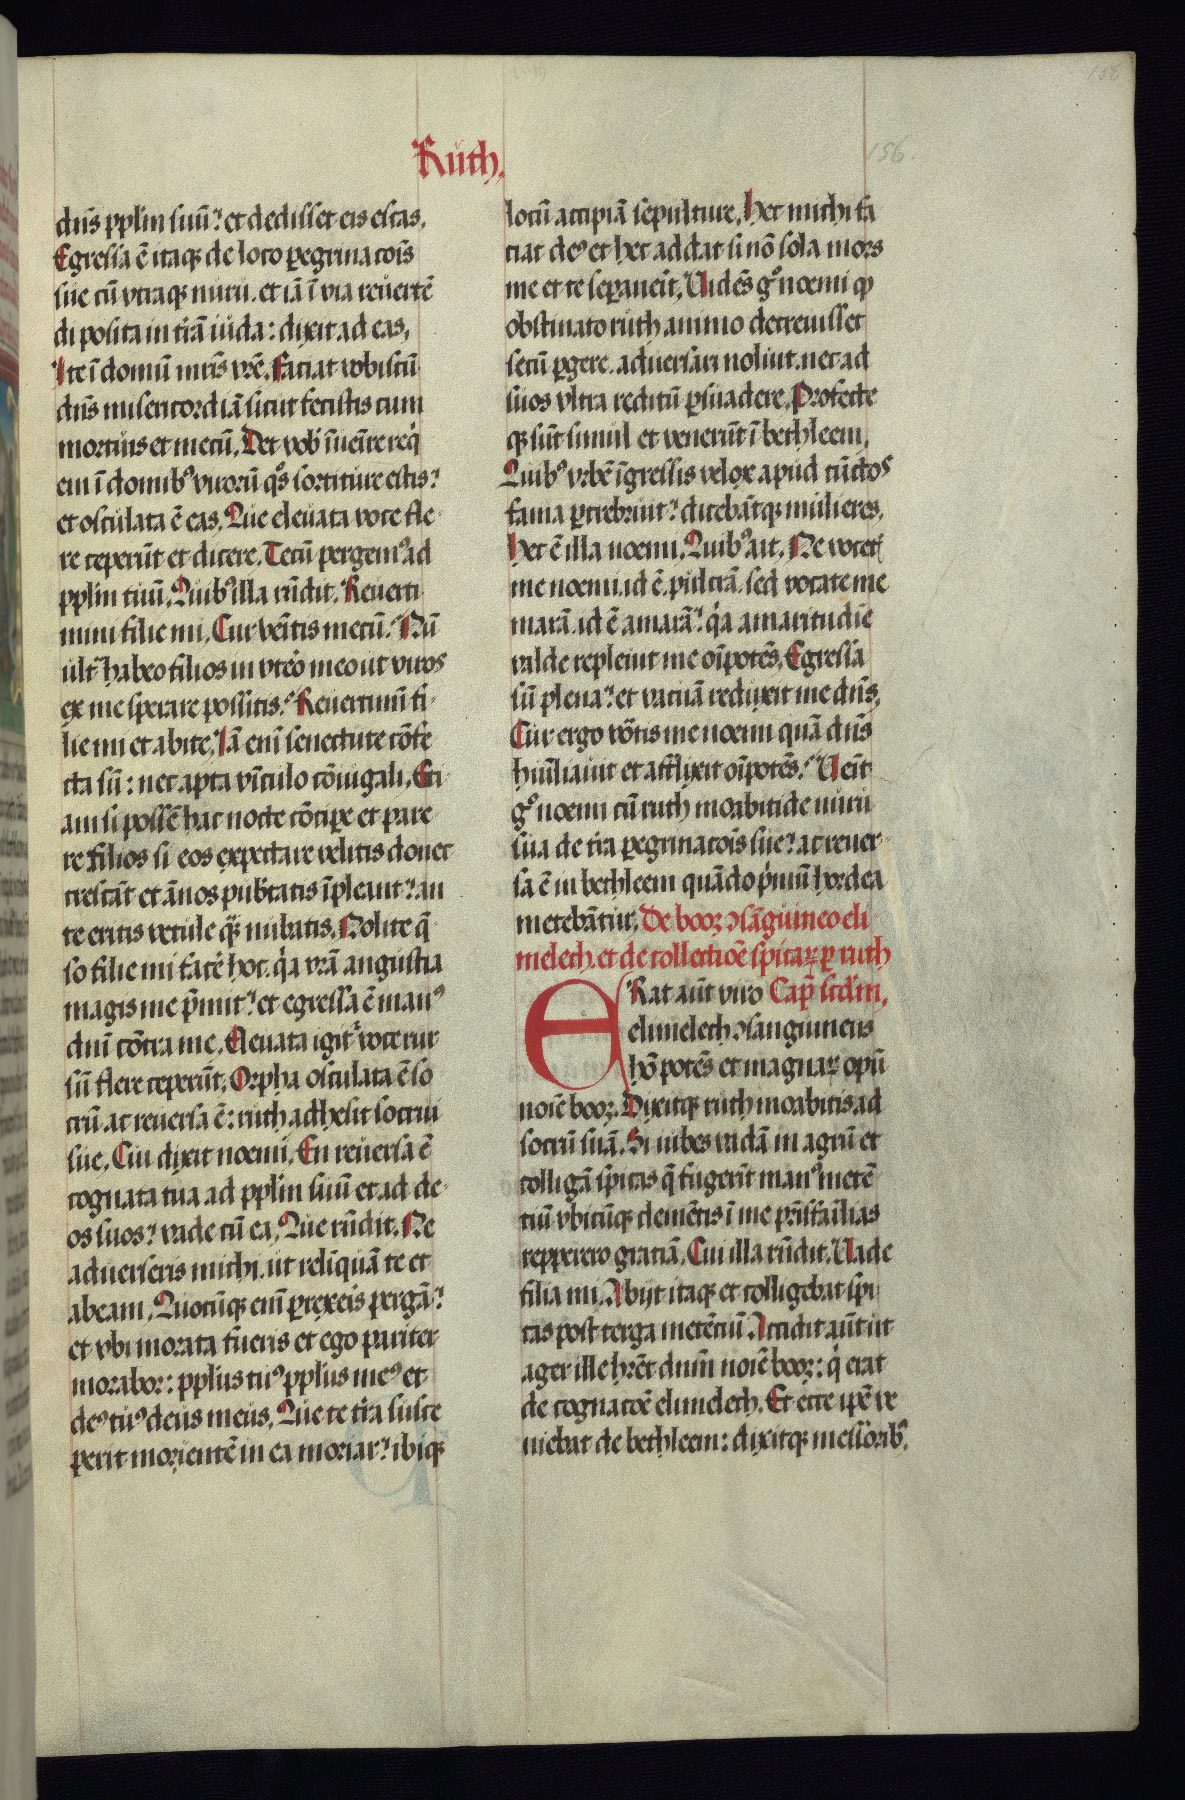 Ruth.
156
dn̄s pplm̄ suū? et dedisset eis escas.
Egressa ē itaqꝫ de loco ꝑegrinacōis
sue cū vtraqꝫ nuru. et iā ī via reuertē
di posita in t̄rā iuda: dixit ad eas.
Ite ī domū mr̄is vr̄e. Faciat vobiscū
dn̄s misericordiā sicut fecistis cum
mortuis et mecū. Det vob̄ īuenīre req̇
em ī domibꝰ viroꝝ qͦs sortiture estis?
et osculata ē eas. Que eleuata voce fle
re ceperūt et dicere. Tecū pergemꝰ ad
pplm̄ tuū. Quibꝰ illa rn̄dit. Reuerti
mini filie mi. Cur venītis mecū? Nū
ult̄ habeo filios in vtero meo ut viros
ex me sperare possitis? Reuertimī fi
lie mi et abite. Iā enī senectute cōfe
cta sū: nec apta vīculo cōiugali. Eci
am si possē hac nocte cōcipe et pare
re filios si eos expectare velitis donec
crescāt et ānos pub̄tatis īpleant? an
te eritis vetule qͣ nubatis. Nolite q̄
so filie mi facē hoc. q̇a vr̄a angustia
magis me p̄mit? et egressa ē manꝰ
dnī cōtra me. Eleuata igit̄ voce rur
sū flere ceperūt. Orpha osculata ē so
crū at reuersa ē: ruth adhesit socrui
sue. Cui dixit noemi. En reuersa ē
cognata tua ad pplm̄ suū et ad de
os suos? vade cū ea. Que rn̄dit. Ne
aduerseris michi. ut relīquā te et
abeam. Quocūqꝫ enī ꝑrexeis pergā?
et vbi morata fueris et ego pariter
morabor: pplūs tuꝰ pplūs meꝰ et
deꝰ tuꝰ deus meus. Que te t̄ra susce
perit morientē in ea moriar? ibiqꝫ
locū accipiā sepulture. Hec michi fa
ciat deꝰ et hec addat si nō sola mors
me et te seꝑauerit. Uidēs gͦ noemi ꝙ
obstinato ruth animo decreuisset
secū ꝑgere. aduersari noluit. nec ad
suos vltra reditū ꝑsuadere. Profecte
qꝫ sūt simul et venerūt ī bethleem.
Quibꝰ vrbē īgressis velox apud cūctos
fama ꝑcrebruit? dicebātqꝫ mulieres.
Hec ē illa noemi. Quibꝰ ait. Ne vocet̄
me noemi. id ē. pulcrā. sed vocate me
marā. id ē amarā? q̇a amaritudīe
valde repleuit me oīpotēs. Egressa
sū plena? et vacuā reduxit me dn̄s.
Cur ergo vōtis me noemi quā dn̄s
humīliauit et afflixit oīpotēs? Uēit
gͦ noemi cū ruth moabitide nuru
sua de t̄ra ꝑegrinacōis sue? at reuer
sa ē in bethleem quādo ṗmū hordea
metebātur. De booz ꝯsāguineo eli
melech. et de collectiōe spicaꝝ ꝑ ruth
ERat aūt viro Cap̄ scd̄m.
elimelech ꝯsanguineus
hō potēs et magnaꝝ opū
noīe booz. Dixitqꝫ ruth moabitis ad
socrū suā. Si iubes vadā in agrū et
colligā spicas q̄ fugerūt manꝰ metē
ciū vbicūqꝫ clemētis ī me pr̄isfāilias
repperero graciā. Cui illa rn̄dit. Uade
filia mi. Abijt itaqꝫ et colligebat spi
cas post terga metēciū. Accidit aūt ut
ager ille hr̄et dnm̄ noīe booz: q̇ erat
de cognacōe elimelech. Et ecce ipē ve
niebat de bethleem: dixitqꝫ messoribꝰ.